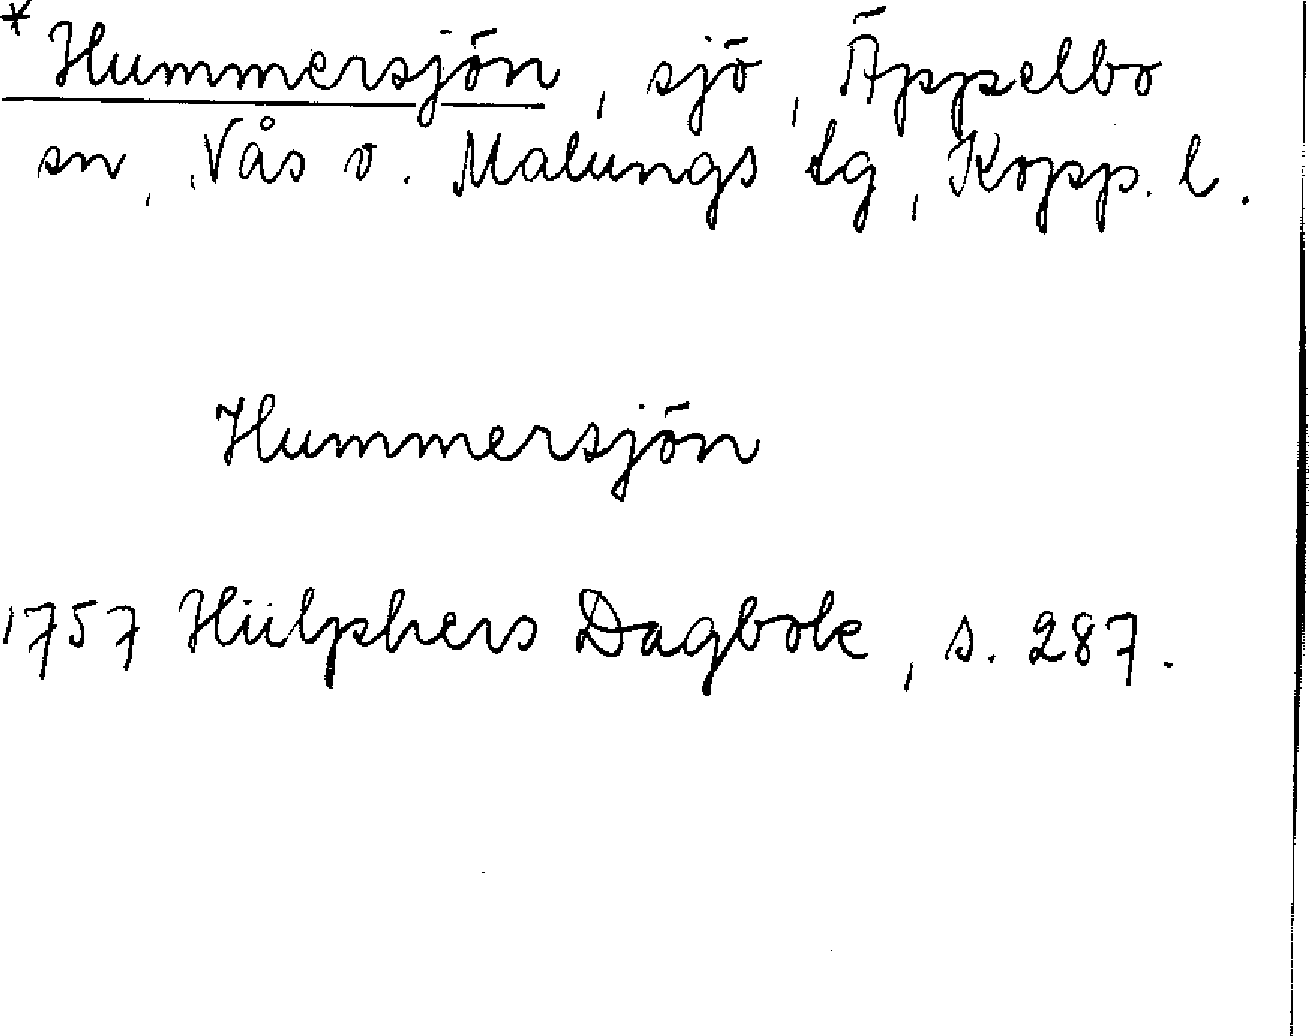 *Hummersjön, sjö, Äppelbo
sn, Nås o. Malungs tg, Kopp. l.
Hummersjön
1757 Hülphers Dagbok, s. 287.